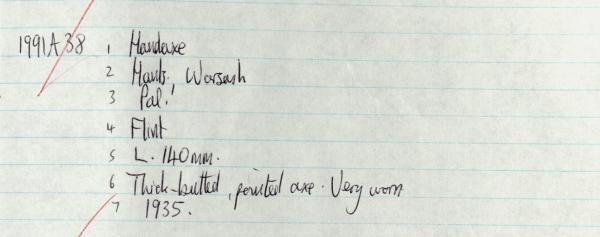 1991A 38 1 Handaxe
2 Hants. Warsash
3 Pal.
4 Flint
5 L. 140mm.
6 Thick-butted, pointed axe. Very worn
7 1935.